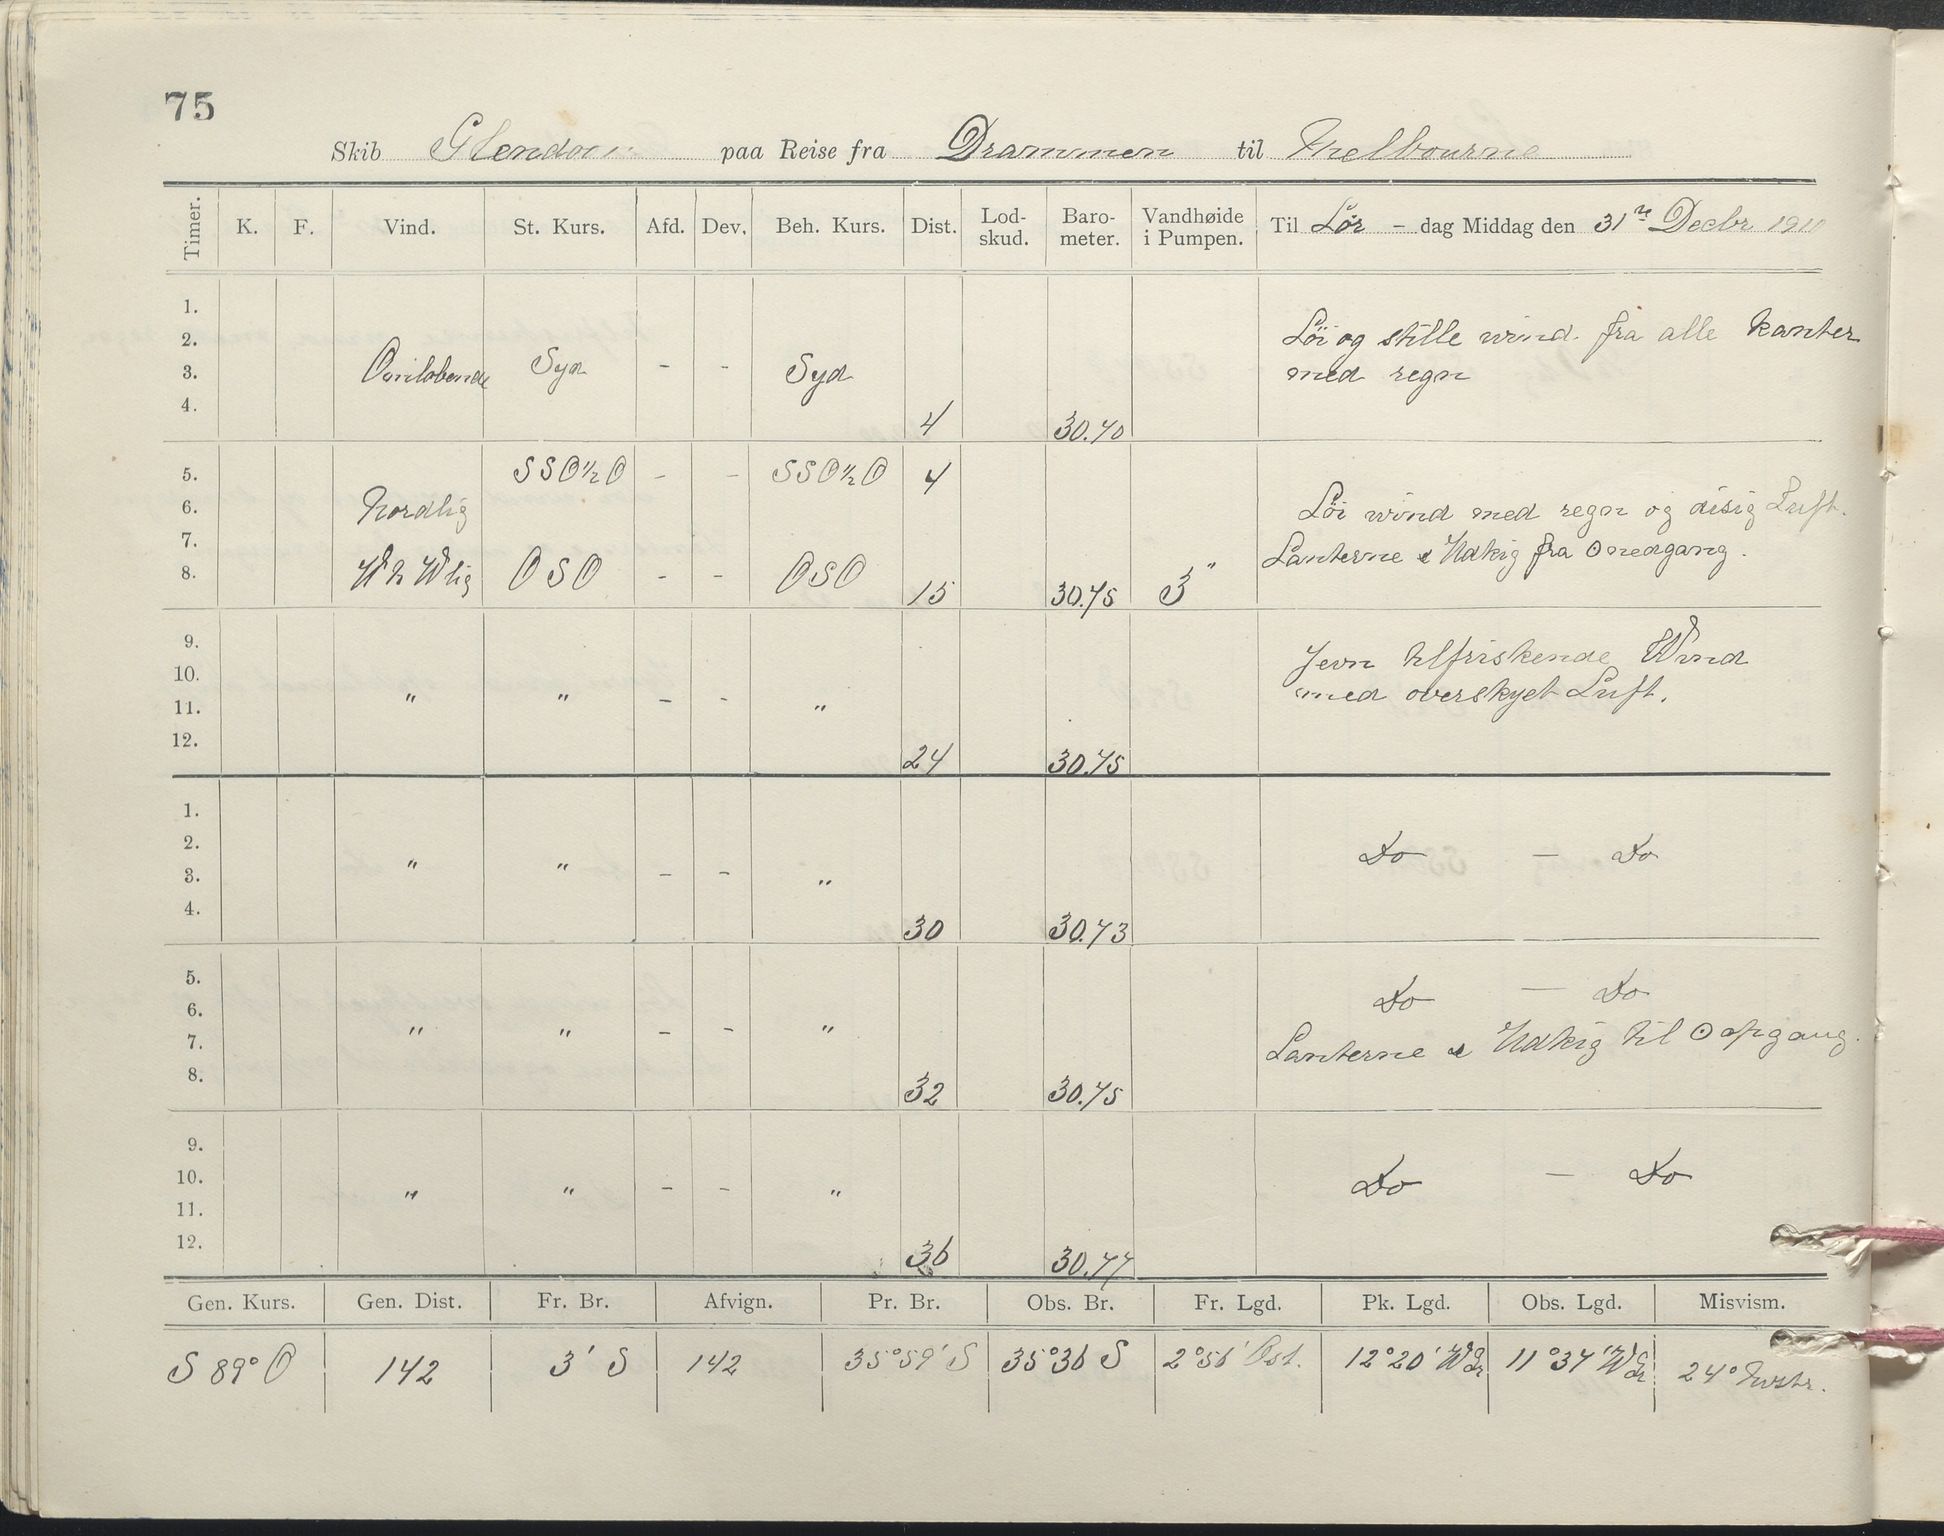 75
Skib Glendoon paa Reise fra Drammen til Melbourne
Timer. K. F. Vind. St. Kurs. Afd. Dev. Beh. Kurs. Dist. Lod-skud. Baro-meter. Vandhøide i Pumpen. Til Lør - dag Middag den 31te Decbr 1910
1.
2. Löi og stille wind fra alle kanter
3. Omlobende Syd - - Syd med regn
4. 4 30.70
5. SSO½O - - SSO½O 4
6. Nordlig Löi wind med regn og disig Luft.
7. Lanterne & Udkig fra ʘ nedgang.
8. WNWlig OSO - - OSO 15 30.75 3"
9. Jevn tilfriskende Wind
10. med overskyet Luft.
11. " " - - "
12. 24 30.75
1.
2. Do — Do
3. " " - - "
4. 30 30.73
5. Do — Do
6.
7. " " - - " Lanterne & Udkig til ʘ opgang.
8. 32 30.75
9.
10. Do — Do
11. " " - - "
12. 36 30.77
Gen. Kurs. Gen. Dist. Fr. Br. Afvign. Pr. Br. Obs. Br. Fr. Lgd. Pk. Lgd. Obs. Lgd. Misvism.
S 89° O 142 3' S 142 35°59' S 35°36 S 2°56' Ost. 12°20' W 11°37' W 24°